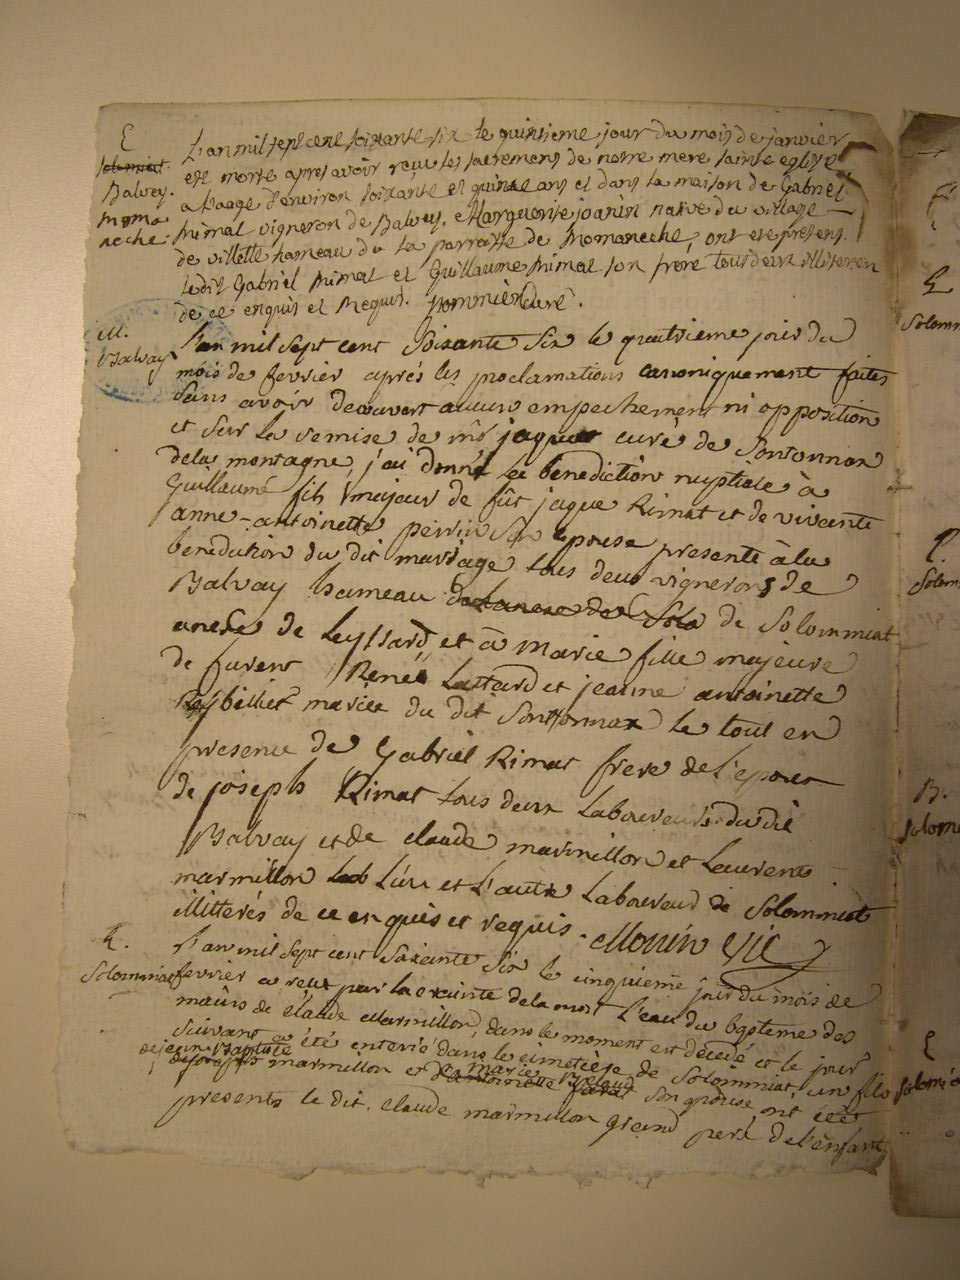 E
Solomiat
Balvey.
L'an mil sept cent soixante six le quinsieme jour du mois de janvier
est morte apres avoir reçu les sacremens de notre mere sainte eglise
a l'aage d'environ soixante et quinze ans et dans la maison de Gabriel
Rimat vigneron de Balvey. Marguerite joanin naive du village
de villette hameau de la parroisse de Momaneche, ont ete presens
ledit Gabriel Rimat et Guillaume Rimat son frere tous deux illiteren
de ce enquis et Requis. curé.
M.
Balvay
L'an mil sept cent soixante six le quatrieme jour du
mois de fevrier après les proclamations canoniquement faites
sans avoir decouvert aucun empechement ni opposition
et sur la remise de mr jaquet curé de Sontonnax
dela montagne, j'ai donné la benediction nuptiale à
Guillaume fils majeur de fût jaque Rimat et de vivante
anne-antoinette perrin son epouse presente à la
benediction du dit mariage tous deux vignerons de
Balvay hameau de Solommiat
anexe de Leyssard, et à Marie fille majeure
de furent René Lattard et jeanne antoinette
Reybillier mariée du dit Sontonnax le tout en
presence de Gabriel Rimat frere de l'epoux
de joseph Rimat tous deux Laboureurs du dit
Balvay et de claude marmillon et Laurent
marmillon L'un et L'autre Laboureur de Solommiat
illiterés de ce enquis et requis. Monin Vic
Solommiat
L'an mil sept cent soixante six le cinquieme jour du mois de
fevrier a reçut par la crainte de la mort l'eau du bapteme des
mains de claude Marmillon, dans le moment est decedé et le jour
suivant a été enterré dans le cimetière de Solommiat, un fils
de jean Baptiste marmillon et de marie son epouse, ont étés
presents le dit claude marmillon grand pere de l'enfant
E
Solomm
Solom
B.
Solom
E
Solomi